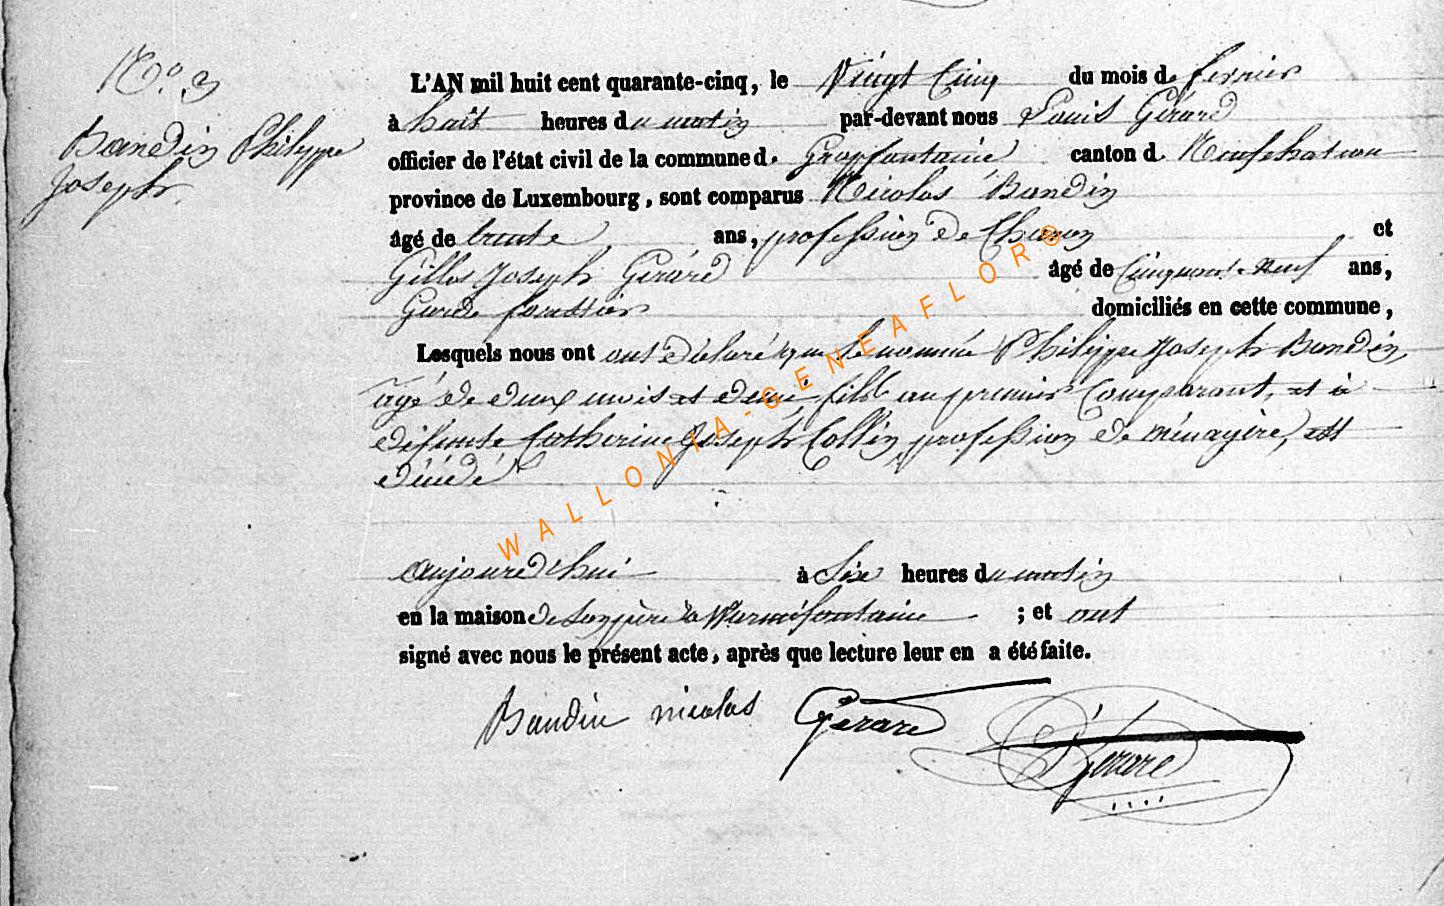 N.o 3
Baudin Philippe
Joseph.
L'AN mil huit cent quarante-cinq, le Vingt Cinq du mois de fevrier
à huit heures du matin par-devant nous Louis Gérard
officier de l'état civil de la commune d. Grapfontaine canton d Neufchateau
province de Luxembourg, sont comparus Nicolas Baudin
âgé de trente ans, profession de Charon et
Gilles Joseph Gérard âgé de Cinquante Neuf ans,
Garde forestier domiciliés en cette commune,
Lesquels nous ont ont déclaré que le nommé Philippe Joseph Baudin,
agé de deux mois et demi, fils au premier Comparant, et à
défunte Catherine Joseph Collin profession de ménagère, est
décédé
aujourd'hui à Six heures du matin
en la maison de son père à Warmifontaine ; et ont
signé avec nous le présent acte, après que lecture leur en a été faite.
Baudin nicolas Gérard Gérard
WALLONIA-GENEAFLOR®